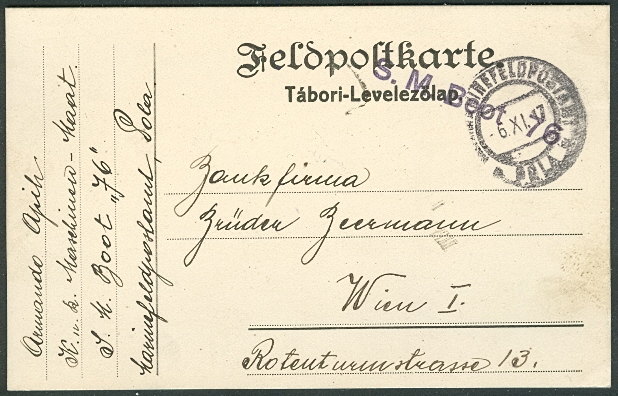 Feldpostkarte
Tábori-Levelezőlap
S. M. Boot 76
MARINEFELDPOSTAMT
6.XI.17
POLA
Bankfirma
Brüder Beermann
Wien I.
Rotenturmstrasse 13.
Armando Apih
K. u. k. Maschinen-Maat.
S. M. Boot "76"
Marinefeldpostamt, Pola